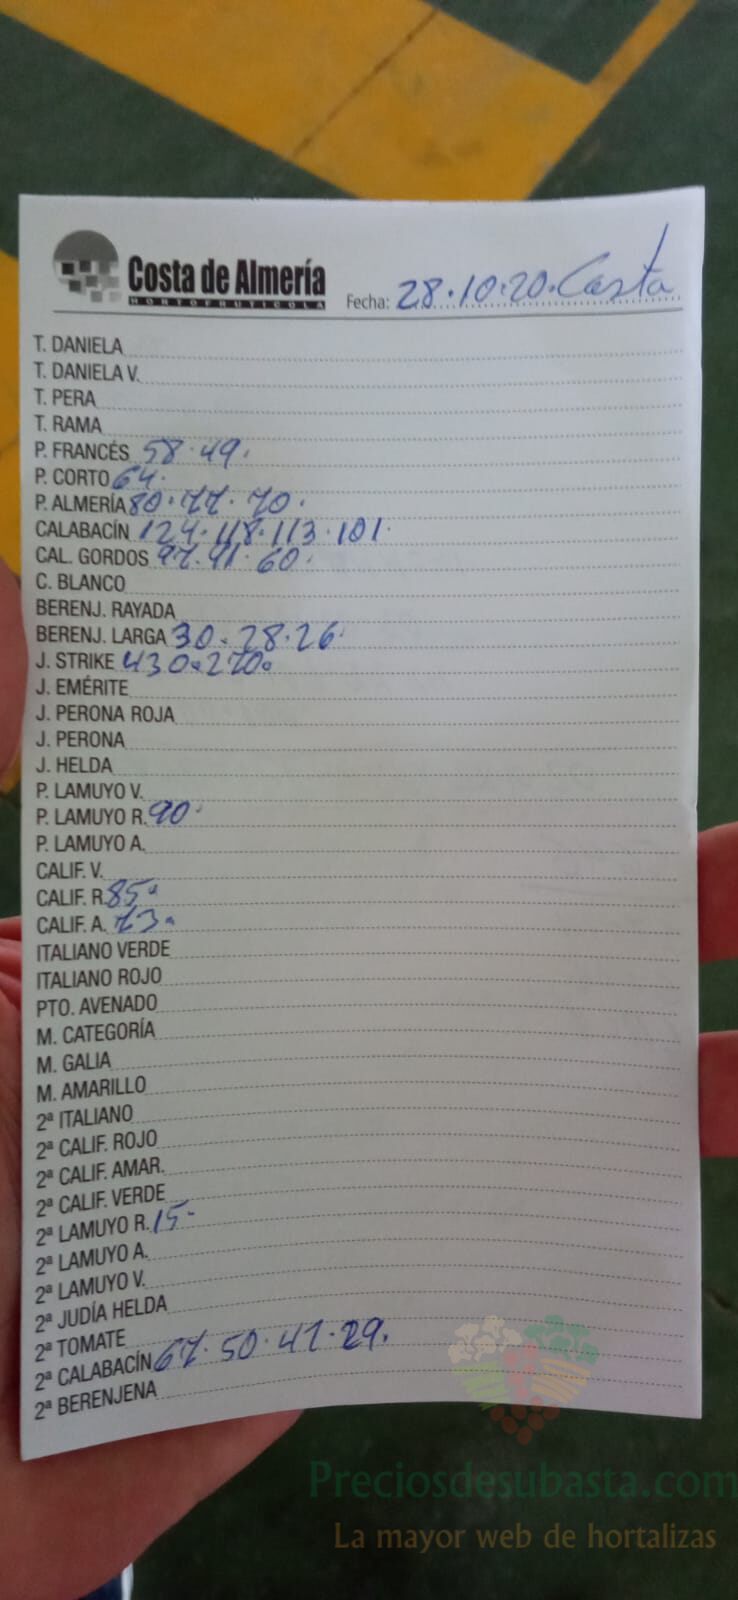 Costa de Almería
HORTOFRUTICOLA
Fecha: 28.10.20. Costa
T. DANIELA
T. DANIELA V.
T. PERA
T. RAMA
P. FRANCÉS 58.49.
P. CORTO 64.
P. ALMERÍA 80.77.70.
CALABACÍN 124.118.113.101.
CAL. GORDOS 97.91.60.
C. BLANCO
BERENJ. RAYADA
BERENJ. LARGA 30.28.26.
J. STRIKE 430.270.
J. EMÉRITE
J. PERONA ROJA
J. PERONA
J. HELDA
P. LAMUYO V.
P. LAMUYO R. 90.
P. LAMUYO A.
CALIF. V.
CALIF. R. 85.
CALIF. A. 73.
ITALIANO VERDE
ITALIANO ROJO
PTO. AVENADO
M. CATEGORÍA
M. GALIA
M. AMARILLO
2ª ITALIANO
2ª CALIF. ROJO
2ª CALIF. AMAR.
2ª CALIF. VERDE
2ª LAMUYO R. 15.
2ª LAMUYO A.
2ª LAMUYO V.
2ª JUDÍA HELDA
2ª TOMATE
2ª CALABACÍN 67.50.41.29.
2ª BERENJENA
Preciosdesubasta.com
La mayor web de hortalizas